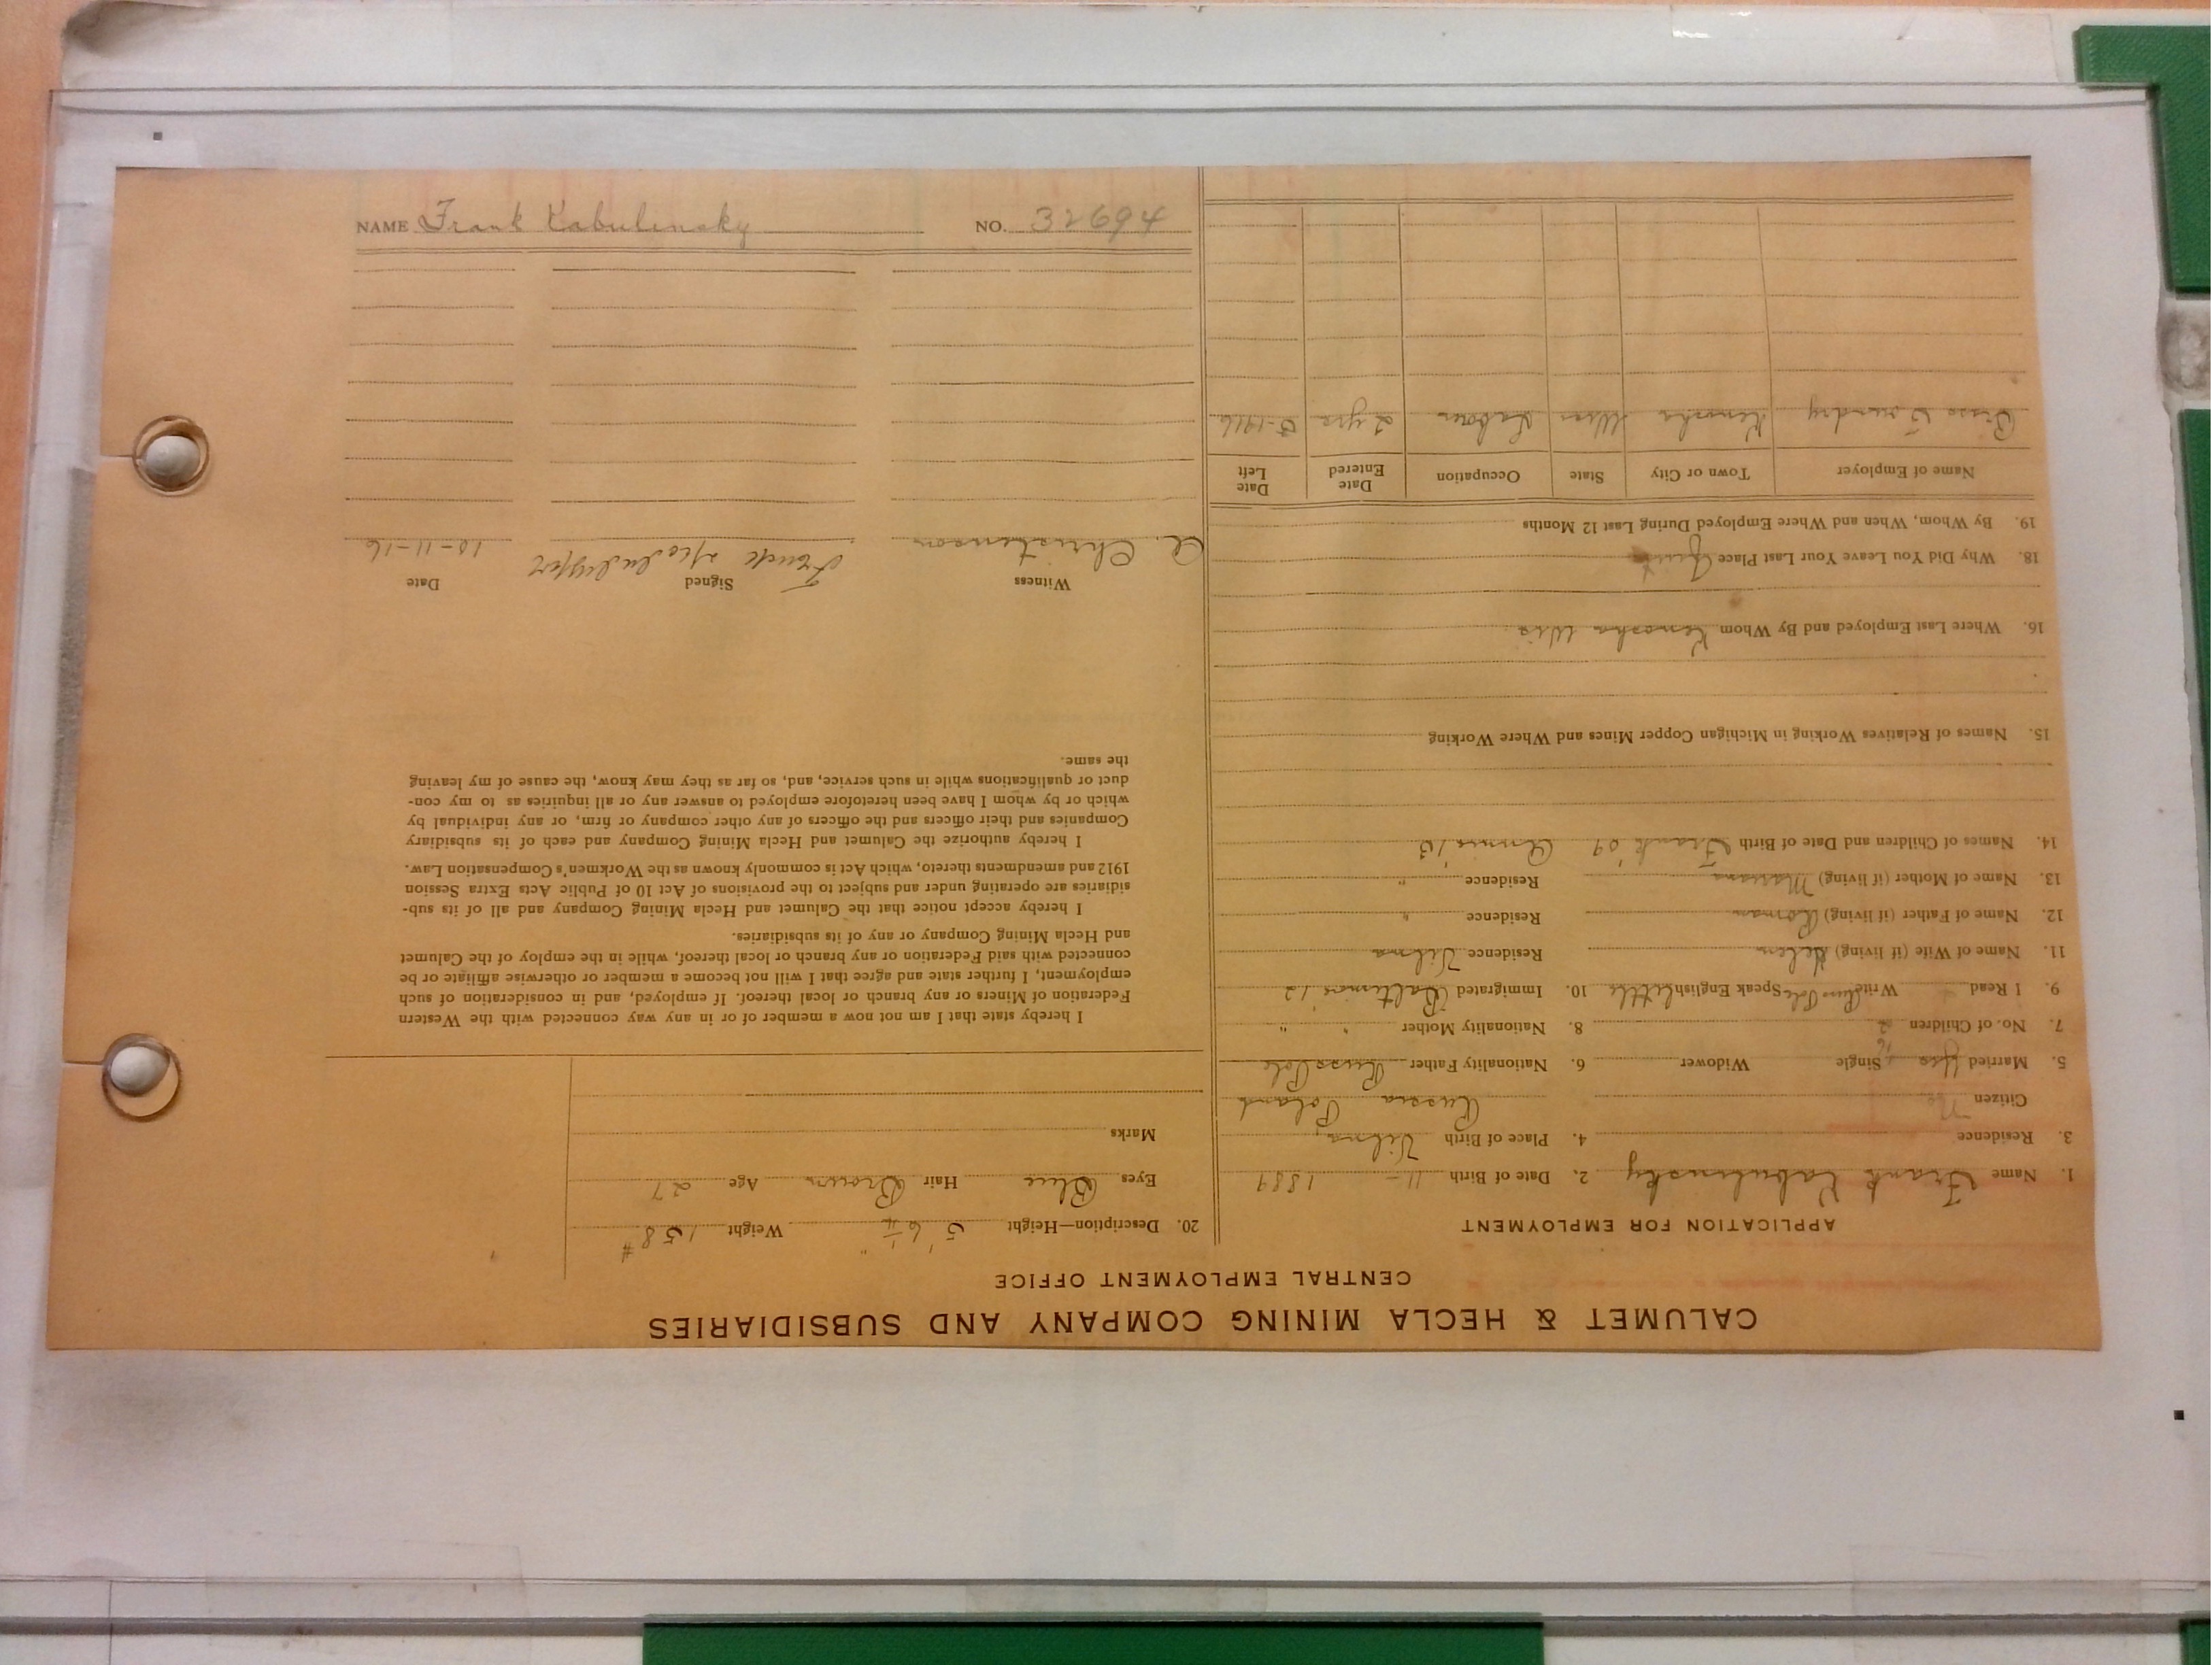 CALUMET & HECLA MINING COMPANY AND SUBSIDIARIES
CENTRAL EMPLOYMENT OFFICE
APPLICATION FOR EMPLOYMENT
1. Name Frank Kabulinsky 2. Date of Birth 11 - 1889
3. Residence 4. Place of Birth Vilna,
Citizen No. Russia Poland
5. Married Yes Single Widower 6. Nationality Father Russ Pole
7. No. of Children 2 8. Nationality Mother " "
9. I Read Write Russ Pole Speak English a little 10. Immigrated Baltimore '12
11. Name of Wife (if living) Helen Residence Vilna
12. Name of Father (if living) Roman Residence "
13. Name of Mother (if living) Residence "
14. Names of Children and Date of Birth Frank '09 Annie '10
15. Names of Relatives Working in Michigan Copper Mines and Where Working
16. Where Last Employed and By Whom Kenosha Wis
18. Why Did You Leave Your Last Place Quit
19. By Whom, When and Where Employed During Last 12 Months
Name of Employer Town or City State Occupation Date Entered Date Left
Brass Foundry Kenosha Wis Labor 2 yrs 5-1916
20. Description—Height 5' 6 1/4" Weight 158#
Eyes Blue Hair Brown Age 27
Marks
I hereby state that I am not now a member of or in any way connected with the Western
Federation of Miners or any branch or local thereof. If employed, and in consideration of such
employment, I further state and agree that I will not become a member or otherwise affiliate or be
connected with said Federation or any branch or local thereof, while in the employ of the Calumet
and Hecla Mining Company or any of its subsidiaries.
I hereby accept notice that the Calumet and Hecla Mining Company and all of its sub-
sidiaries are operating under and subject to the provisions of Act 10 of Public Acts Extra Session
1912 and amendments thereto, which Act is commonly known as the Workmen's Compensation Law.
I hereby authorize the Calumet and Hecla Mining Company and each of its subsidiary
Companies and their officers and the officers of any other company or firm, or any individual by
which or by whom I have been heretofore employed to answer any or all inquiries as to my con-
duct or qualifications while in such service, and, so far as they may know, the cause of my leaving
the same.
Witness Signed Date
A. Christenson 10-11-16
NAME Frank Kabulinsky NO. 32694